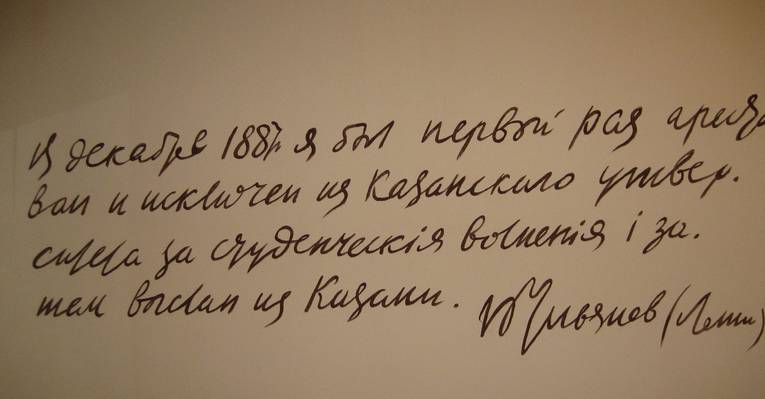 в декабре 1887 г. я был первый раз аресто
ван и исключен из Казанского универ.
ситета за студенческія волненія і за.
тем выслан из Казани.
В Ульянов (Ленин)